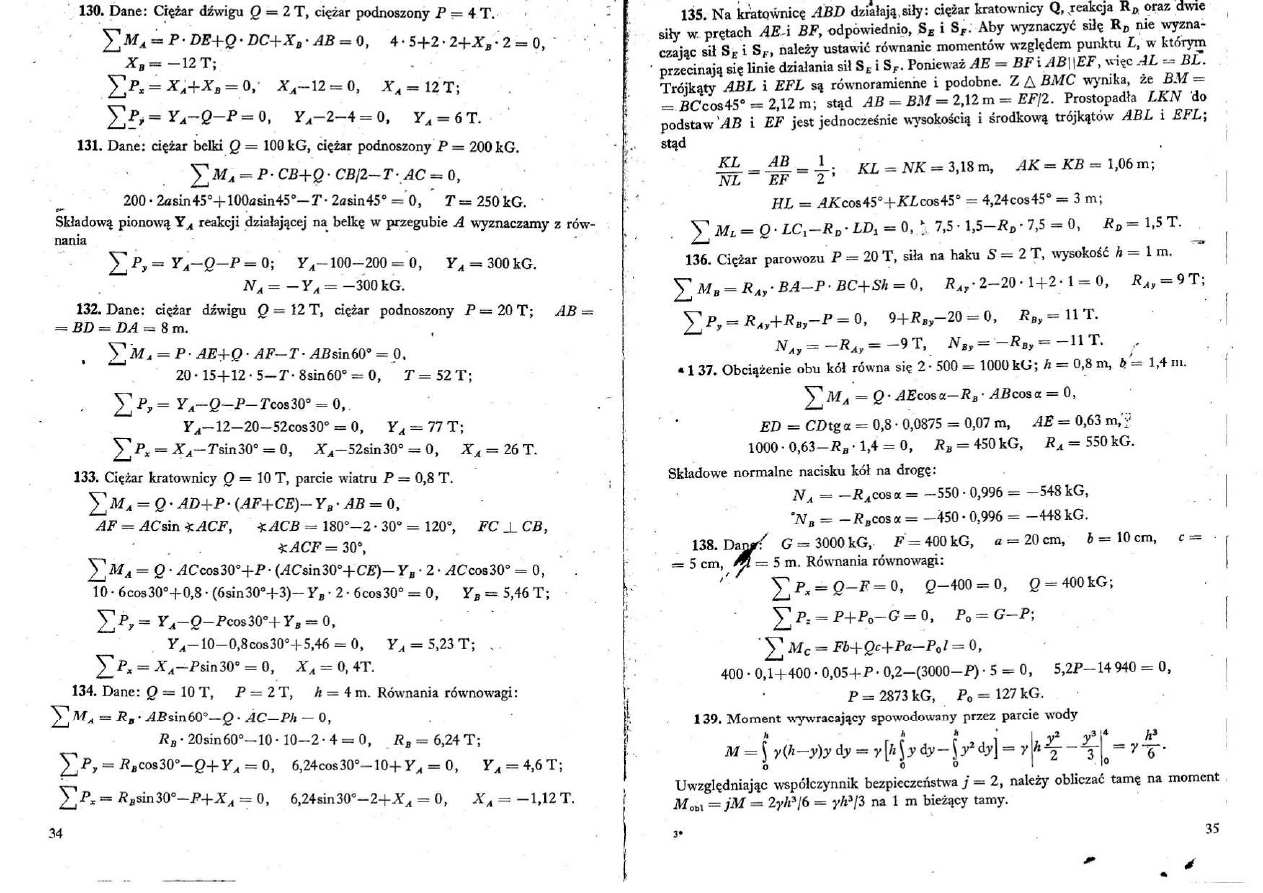 130. Dane: Ciężar dźwigu Q = 2 T, ciężar podnoszony P = 4 T.
∑ M_A = P · DE+Q · DC+X_B · AB = 0, 4 · 5+2 · 2+X_B · 2 = 0,
X_B = —12 T;
∑ P_x = X_A+X_B = 0, X_A—12 = 0, X_A = 12 T;
∑ P_y = Y_A—Q—P = 0, Y_A—2—4 = 0, Y_A = 6 T.
131. Dane: ciężar belki Q = 100 kG, ciężar podnoszony P = 200 kG.
∑ M_A = P · CB+Q · CB/2—T · AC = 0,
200 · 2a sin45°+100a sin45°—T · 2a sin45° = 0, T = 250 kG.
Składową pionową Y_A reakcji działającej na belkę w przegubie A wyznaczamy z rów-
nania
∑ P_y = Y_A—Q—P = 0; Y_A—100—200 = 0, Y_A = 300 kG.
N_A = —Y_A = —300 kG.
132. Dane: ciężar dźwigu Q = 12 T, ciężar podnoszony P = 20 T; AB =
= BD = DA = 8 m.
∑ M_A = P · AE+Q · AF—T · AB sin60° = 0,
20 · 15+12 · 5—T · 8sin60° = 0, T = 52 T;
∑ P_y = Y_A—Q—P—Tcos30° = 0,
Y_A—12—20—52cos30° = 0, Y_A = 77 T;
∑ P_x = X_A—Tsin30° = 0, X_A—52sin30° = 0, X_A = 26 T.
133. Ciężar kratownicy Q = 10 T, parcie wiatru P = 0,8 T.
∑ M_A = Q · AD+P · (AF+CE)—Y_B · AB = 0,
AF = AC sin ∢ACF, ∢ACB = 180°—2 · 30° = 120°, FC ⊥ CB,
∢ACF = 30°,
∑ M_A = Q · ACcos30°+P · (ACsin30°+CE)—Y_B · 2 · ACcos30° = 0,
10 · 6cos30°+0,8 · (6sin30°+3)—Y_B · 2 · 6cos30° = 0, Y_B = 5,46 T;
∑ P_y = Y_A—Q—Pcos30°+Y_B = 0,
Y_A—10—0,8cos30°+5,46 = 0, Y_A = 5,23 T;
∑ P_x = X_A—Psin30° = 0, X_A = 0, 4T.
134. Dane: Q = 10 T, P = 2 T, h = 4 m. Równania równowagi:
∑ M_A = R_B · ABsin60°—Q · AC—Ph — 0,
R_B · 20sin60°—10 · 10—2 · 4 = 0, R_B = 6,24 T;
∑ P_y = R_Bcos30°—Q+Y_A = 0, 6,24cos30°—10+Y_A = 0, Y_A = 4,6 T;
∑ P_x = R_Bsin30°—P+X_A = 0, 6,24sin30°—2+X_A = 0, X_A = —1,12 T.
34
135. Na kratownicę ABD działają siły: ciężar kratownicy Q, reakcja R_D oraz dwie
siły w prętach AE i BF, odpowiednio, S_E i S_F. Aby wyznaczyć siłę R_D nie wyzna-
czając sił S_E i S_F, należy ustawić równanie momentów względem punktu L, w którym
przecinają się linie działania sił S_E i S_F. Ponieważ AE = BF i AB||EF, więc AL = BL.
Trójkąty ABL i EFL są równoramienne i podobne. Z △ BMC wynika, że BM =
= BCcos45° = 2,12 m; stąd AB = BM = 2,12 m = EF/2. Prostopadła LKN do
podstaw AB i EF jest jednocześnie wysokością i środkową trójkątów ABL i EFL;
stąd
KL/NL = AB/EF = 1/2; KL = NK = 3,18 m, AK = KB = 1,06 m;
HL = AKcos45°+KLcos45° = 4,24cos45° = 3 m;
∑ M_L = Q · LC₁—R_D · LD₁ = 0, 7,5 · 1,5—R_D · 7,5 = 0, R_D = 1,5 T.
136. Ciężar parowozu P = 20 T, siła na haku S = 2 T, wysokość h = 1 m.
∑ M_B = R_Ay · BA—P · BC+Sh = 0, R_Ay · 2—20 · 1+2 · 1 = 0, R_Ay = 9 T;
∑ P_y = R_Ay+R_By—P = 0, 9+R_By—20 = 0, R_By = 11 T.
N_Ay = —R_Ay = —9 T, N_By = —R_By = —11 T.
137. Obciążenie obu kół równa się 2 · 500 = 1000 kG; h = 0,8 m, b = 1,4 m.
∑ M_A = Q · AEcos α—R_B · ABcos α = 0,
ED = CDtg α = 0,8 · 0,0875 = 0,07 m, AE = 0,63 m,
1000 · 0,63—R_B · 1,4 = 0, R_B = 450 kG, R_A = 550 kG.
Składowe normalne nacisku kół na drogę:
N_A = —R_Acos α = —550 · 0,996 = —548 kG,
N_B = —R_Bcos α = —450 · 0,996 = —448 kG.
138. Dane: G = 3000 kG, F = 400 kG, a = 20 cm, b = 10 cm, c =
= 5 cm, = 5 m. Równania równowagi:
∑ P_x = Q—F = 0, Q—400 = 0, Q = 400 kG;
∑ P_z = P+P₀—G = 0, P₀ = G—P;
∑ M_C = Fb+Qc+Pa—P₀l = 0,
400 · 0,1+400 · 0,05+P · 0,2—(3000—P) · 5 = 0, 5,2P—14 940 = 0,
P = 2873 kG, P₀ = 127 kG.
139. Moment wywracający spowodowany przez parcie wody
M = ∫₀ʰ γ(h—y)y dy = γ[h ∫₀ʰ y dy—∫₀ʰ y² dy] = γ |h y²/2 — y³/3|₀⁴ = γ h³/6.
Uwzględniając współczynnik bezpieczeństwa j = 2, należy obliczać tamę na moment
M_obl = jM = 2γh³/6 = γh³/3 na 1 m bieżący tamy.
3*
35